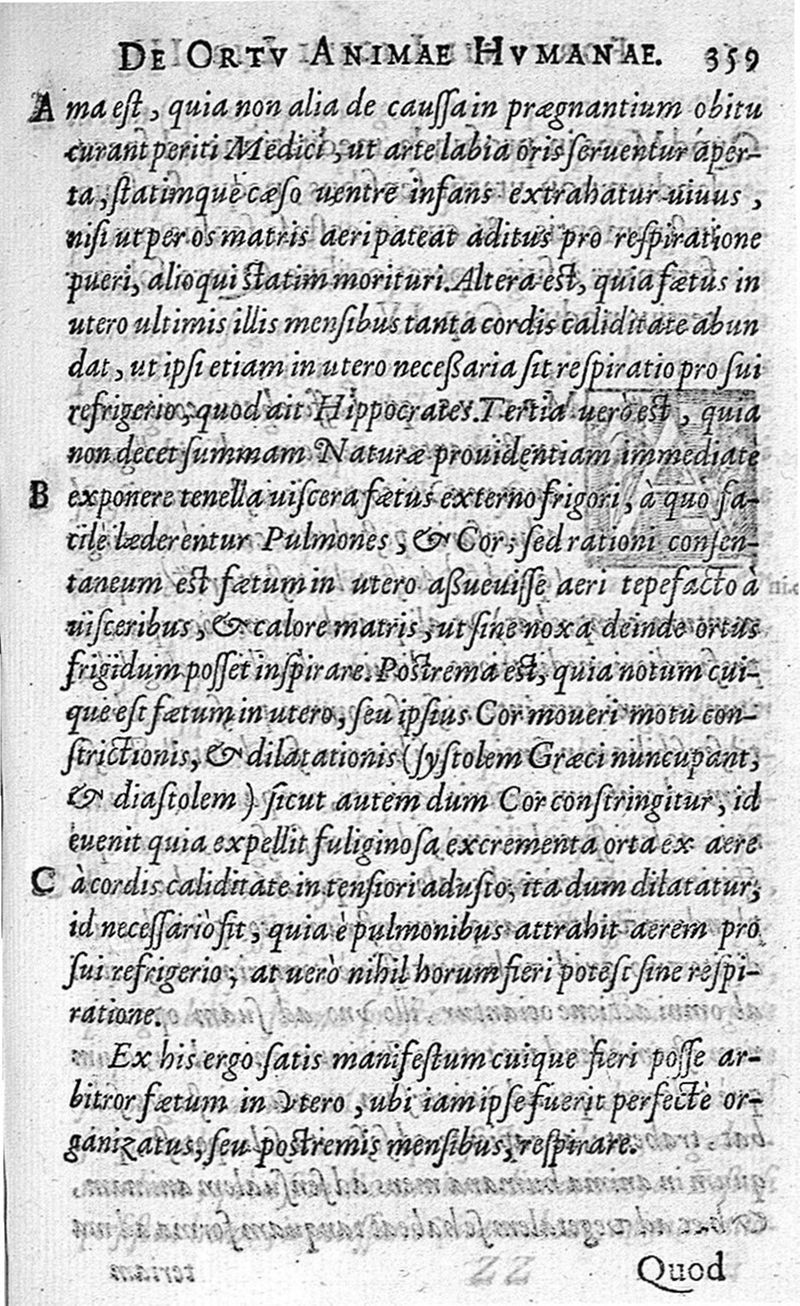 DE ORTV ANIMAE HVMANAE. 359
A ma eſt, quia non alia de cauſſa in prægnantium obitu
curant periti Medici, ut arte labia oris ſeruentur aper-
ta, ſtatimque cæſo uentre infans extrahatur uiuus,
niſi ut per os matris aeri pateat aditus pro reſpiratione
pueri, alioqui ſtatim morituri. Altera eſt, quia fœtus in
utero ultimis illis menſibus tanta cordis caliditate abun
dat, ut ipſi etiam in utero neceßaria ſit reſpiratio pro ſui
refrigerio, quod ait Hippocrates. Tertia uerò eſt, quia
non decet ſummam Naturæ prouidentiam immediatè
B exponere tenella uiſcera fœtus externo frigori, à quò fa-
cilè læderentur Pulmones, & Cor; ſed rationi conſen-
taneum eſt fœtum in utero aßueuiſſe aeri tepefacto à
uiſceribus, & calore matris, ut ſine noxa deinde ortus
frigidum poſſet inſpirare. Poſtrema eſt, quia notum cui-
que eſt fœtum in utero, ſeu ipſius Cor moueri motu con-
ſtrictionis, & dilatationis (ſyſtolem Græci nuncupant,
& diaſtolem) ſicut autem dum Cor conſtringitur, id
euenit quia expellit fuliginoſa excrementa orta ex aere
C à cordis caliditate intenſiori aduſto, ita dum dilatatur,
id neceſſariò fit, quia è pulmonibus attrahit aerem pro
ſui refrigerio; at uerò nihil horum fieri poteſt ſine reſpi-
ratione.
Ex his ergo ſatis manifeſtum cuique fieri poſſe ar-
bitror fœtum in vtero, ubi iam ipſe fuerit perfectè or-
ganizatus, ſeu poſtremis menſibus, reſpirare.
Quod